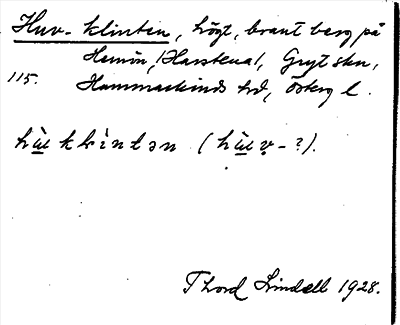 Huv-klinten, högt, brant berg på
Hemön, (Harstena), Gryt skn,
115. Hammarkinds hd, Österg l.
hùːklìntən (hùːv-?).
Thord Lindell 1928.